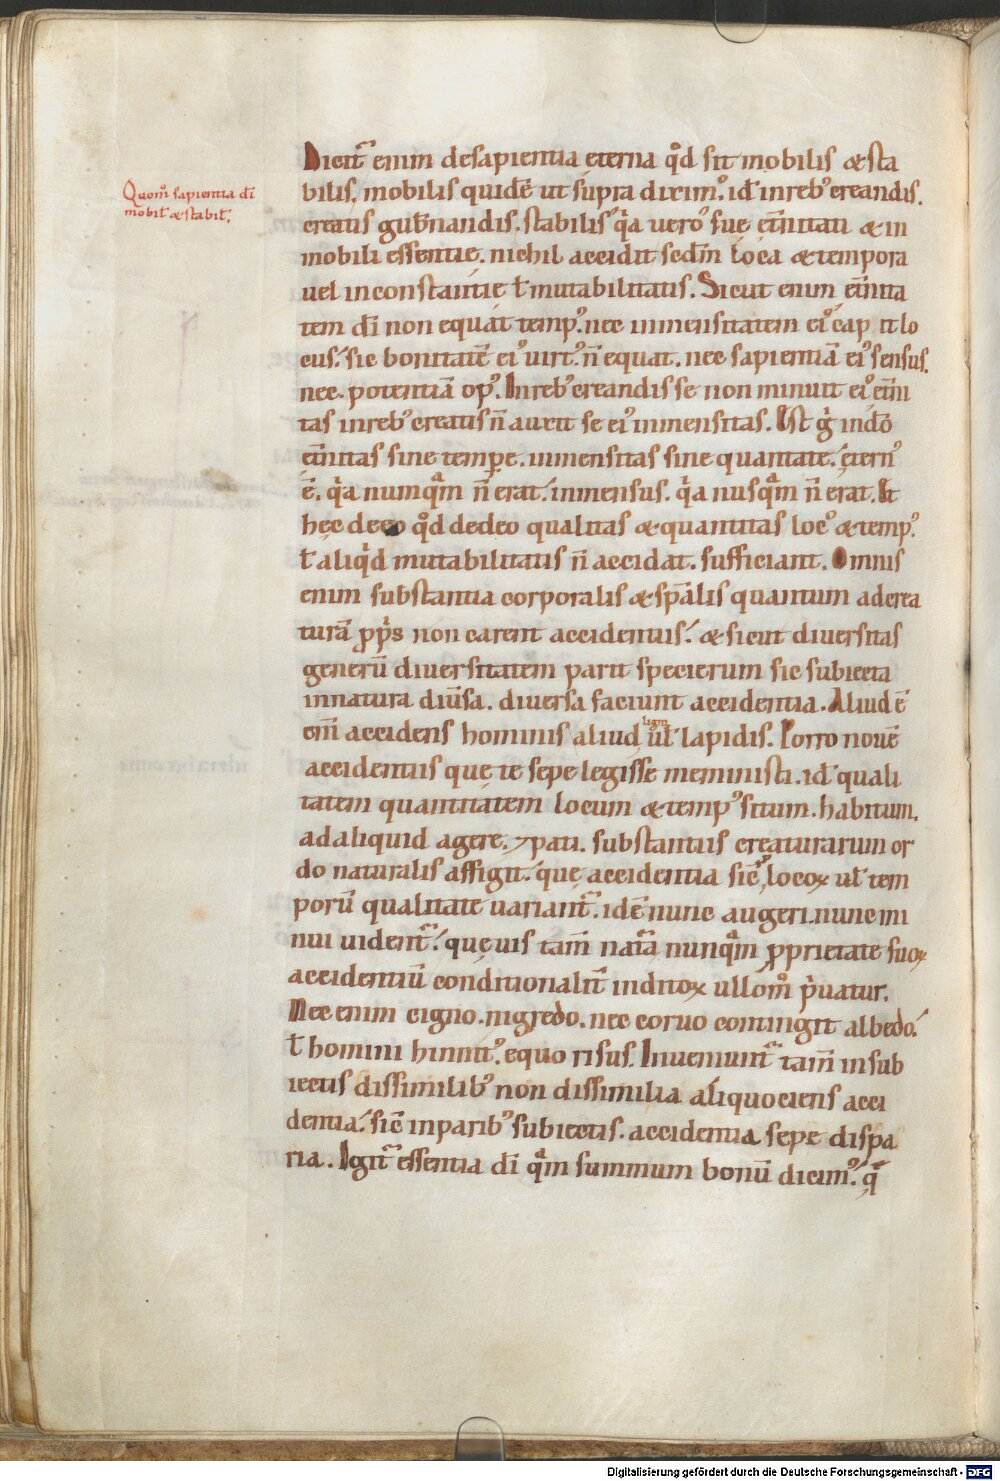 Quom̊ sapientia dī
mobil̄ &stabil̄.
Dicit᷑ enim desapientia eterna qd̄ sit mobilis &sta
bilis. mobilis quidē ut supra diximꝰ. id÷ inrebꝰ creandis.
creatis gub̄nandis. stabilis qͣa uero suę et̄nitati & in
mobili essentię. nichil accidit scdm̄ loca &tempora
uel inconstantię ł mutabilitatis. Sicut enim et̄nita
tem dī non equat tempꝰ. nec inmensitatem eiꝰ cap it lo
cus. sic bonitatē eiꝰ uirtꝰ n̄ equat. nec sapientiā eiꝰ sensus.
nec potentiā opꝰ. Inrebꝰ creandis se non minuit eiꝰ et̄ni
tas inrebꝰ creatis n̄ auxit se eiꝰ inmensitas. Est g̊ indō
et̄nitas sine tempꝑe. inmensitas sine quantitate. ętern̉
ē. qͣa numqͣm n̄ erat. inmensus. qͣa nusqͣm n̄ erat. Et
hęc de eo qd̄ dedeo qualitas &quantitas locꝰ &tempꝰ.
ł aliqͥd mutabilitatis n̄ accidat. sufficiant. Omnis
enim substantia corporalis &spālis quantum adcrea
turā ꝓpͥs non carent accidentiis. & sicut diuersitas
generū diuersitatem parit specierum sic subiecta
innatura diūsa. diuersa faciunt accidentia. Aliud ē
eni̅ accidens hominis aliud ligni ul̄ lapidis. Porro nouē
accidentiis que te sepe legisse meministi. id÷ quali
tatem quantitatem locum &tempꝰ situm. habitum.
adaliquid agere. ⁊pati. substantiis creaturarum or
do naturalis affigit. quę accidentia sic̄ locoꝝ ul̄ tem
porū qualitate uariant᷑. idē nunc augeri. nunc mi
nui uident᷑. quęuis tam̄ nat̄a nunqͣm ꝓprietate suoꝝ
accidentiū conditionalit̄ inditoꝝ ullom̊ pͥuatur.
Nec enim cigno. nigredo. nec coruo contingit albedo.
ł homini hinnitꝰ. equo risus. Inueniunt᷑ tam̄ insub
iectis dissimilibꝰ non dissimilia aliquociens acci
dentia. sic̄ inparibꝰ subiectis. accidentia sepe dispa
ria. Igit᷑ essentia dī qͣm summum bonū dicimꝰ. qͣ
Digitalisierung gefördert durch die Deutsche Forschungsgemeinschaft - DFG